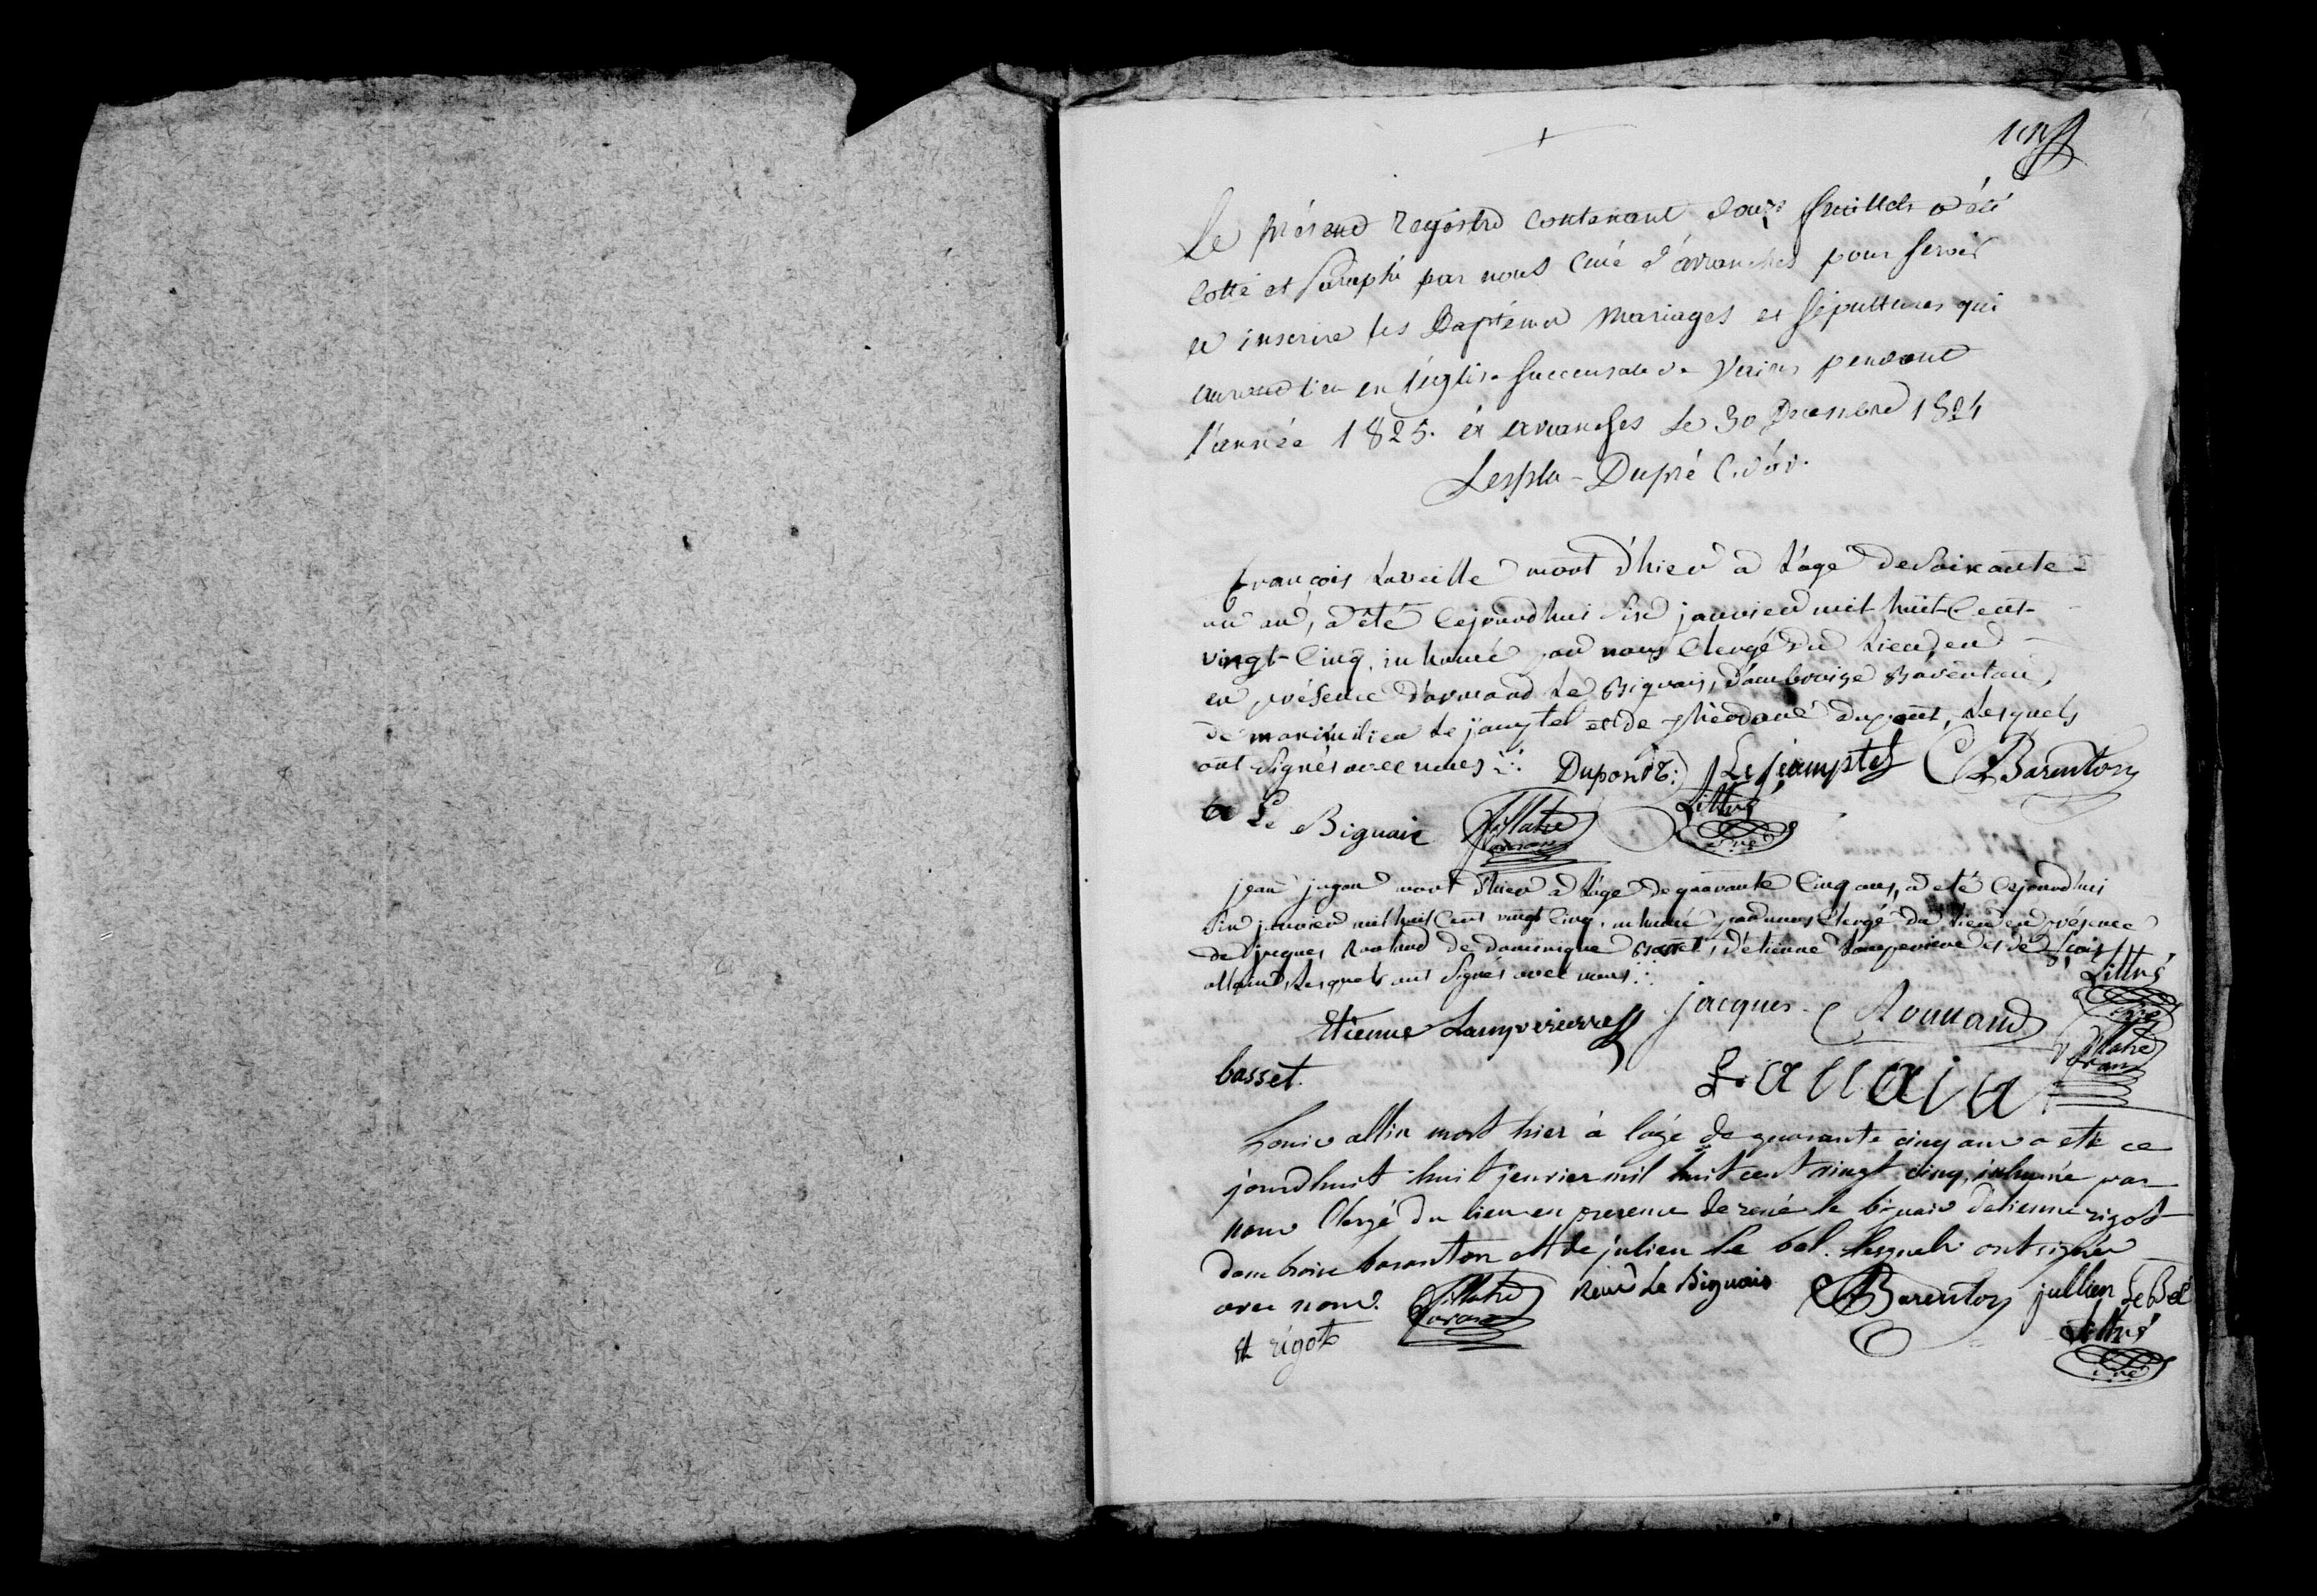 Le présent Registre contenant douze feuillets a été
cotté et paraphé par nous Curé d'avranches pour servir
a inscrire les Baptêmes Mariages et sépultures qui
auront lieu en l'église succursale de pendant
l'année 1825. à avranches le 30 Decembre 1824
Lespla-Dupré C. d'av.
françois Laveille mort d'hier a l'age de soixante-
un an, a été cejourdhui six janvier mil huit-cent-
vingt-cinq, inhumé par nous Clergé du Lieu, en
en présence d'armand Le Biguais, d'ambroise Barenton,
de maximilien Le jamptel et de dupont, Lesquels
ont signés avec nous
Dupont Le jamptel Barenton
a Le Biguais fillatre Littré
vicaire
jean jugan mort d'hier a l'age de quarante cinq ans, a été cejourdhui
six janvier mil huit cent vingt cinq, inhumé par nous Clergé du lieu en présence
de jacques Rouland de dominique Basset, d'etienne Lamperiere et de fcois
allain, Lesquels ont signés avec nous
Littré
Etienne Lamperierre jacques Rouland
fillatre
basset. f. allain
Louis allin mort hier à l'age de quarante cinq ans a eté ce
jourdhuit huit jenvier mil huit cent vingt cinq, inhumé par
nous Clergé du lieu en presence de rené le biguais detienne rigot
dambroise baranton et de julien le bel. lesquels ont signés
avec nous. fillatre René Le Biguais Barenton jullien Le Bel
et rigot Littré